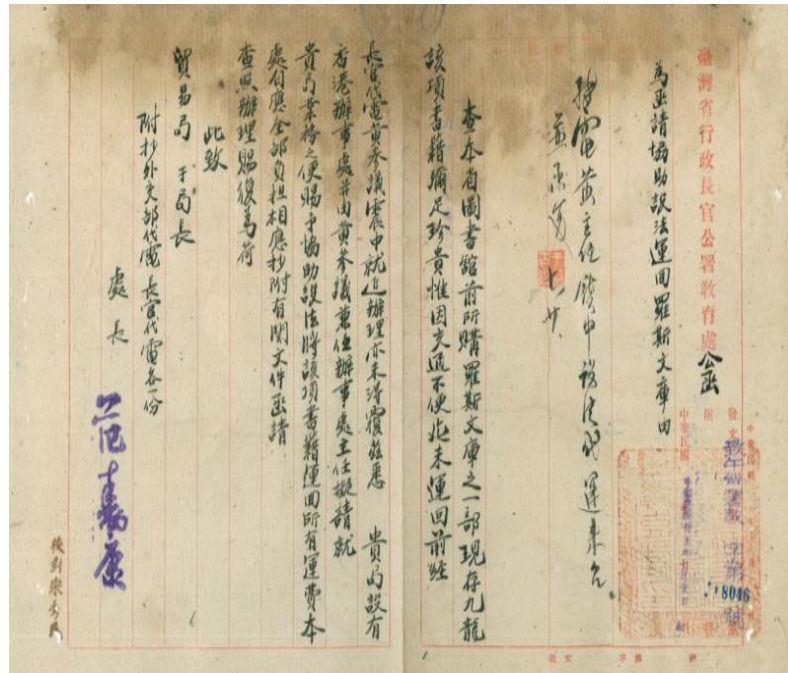 臺灣省行政長官公署教育處公函
中華民國
發文
附
中華民國
字第 號
8046
為函請協助設法運回羅斯文庫由
轉電黃主任震中設法代運來台
七廿
查本省圖書館前所購羅斯文庫之一部現存九龍
該項書籍彌足珍貴惟因交通不便迄未運回前經
長官代電黃參議震中就近辦理亦未得覆茲悉 貴局設有
香港辦事處并由黃參議兼任辦事處主任擬請就
貴局業務之便賜予協助設法將該項書籍運回所有運費本
處自應全部負担相應抄附有關文件函請
查照辦理賜復為荷
此致
貿易局于局長
附抄外交部代電長官代電各一份
處長
范壽康
收文 字 第 號